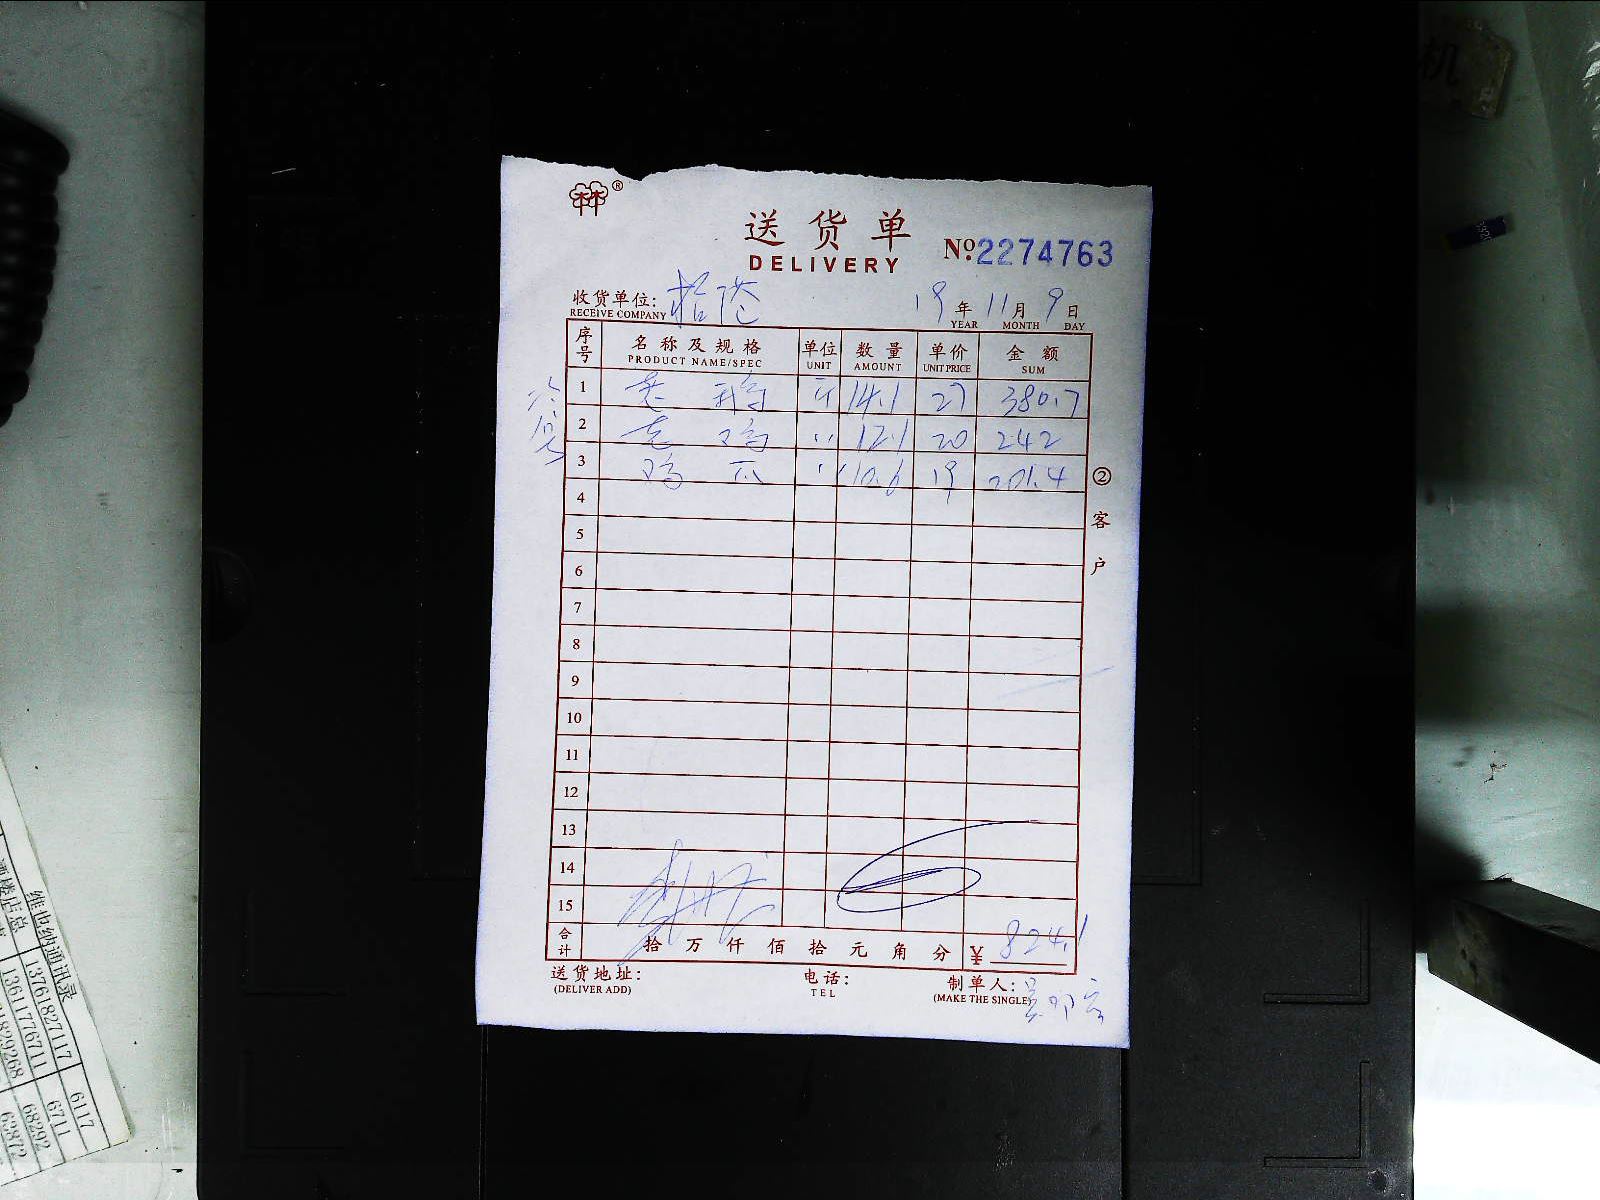 ®
送货单
DELIVERY
№:2274763
收货单位:
19年11月9日
RECEIVE COMPANY YEAR MONTH DAY
序号 名称及规格 单位 数量 单价 金额
PRODUCT NAME/SPEC UNIT AMOUNT UNIT PRICE SUM
1 老鹅 斤 14.1 27 380.7
2 老鸡 〃 12.1 20 242
3 鸡爪 〃 10.6 19 201.4
4
5
6
7
8
9
10
11
12
13
14
15
②客户
合计 拾万仟佰拾元角分 ¥ 824.1
送货地址: 电话: 制单人:
(DELIVER ADD) TEL (MAKE THE SINGLE)
维也纳通讯录
13761827117 6117
13611776711 6711
68292
63872
酒楼店总
机